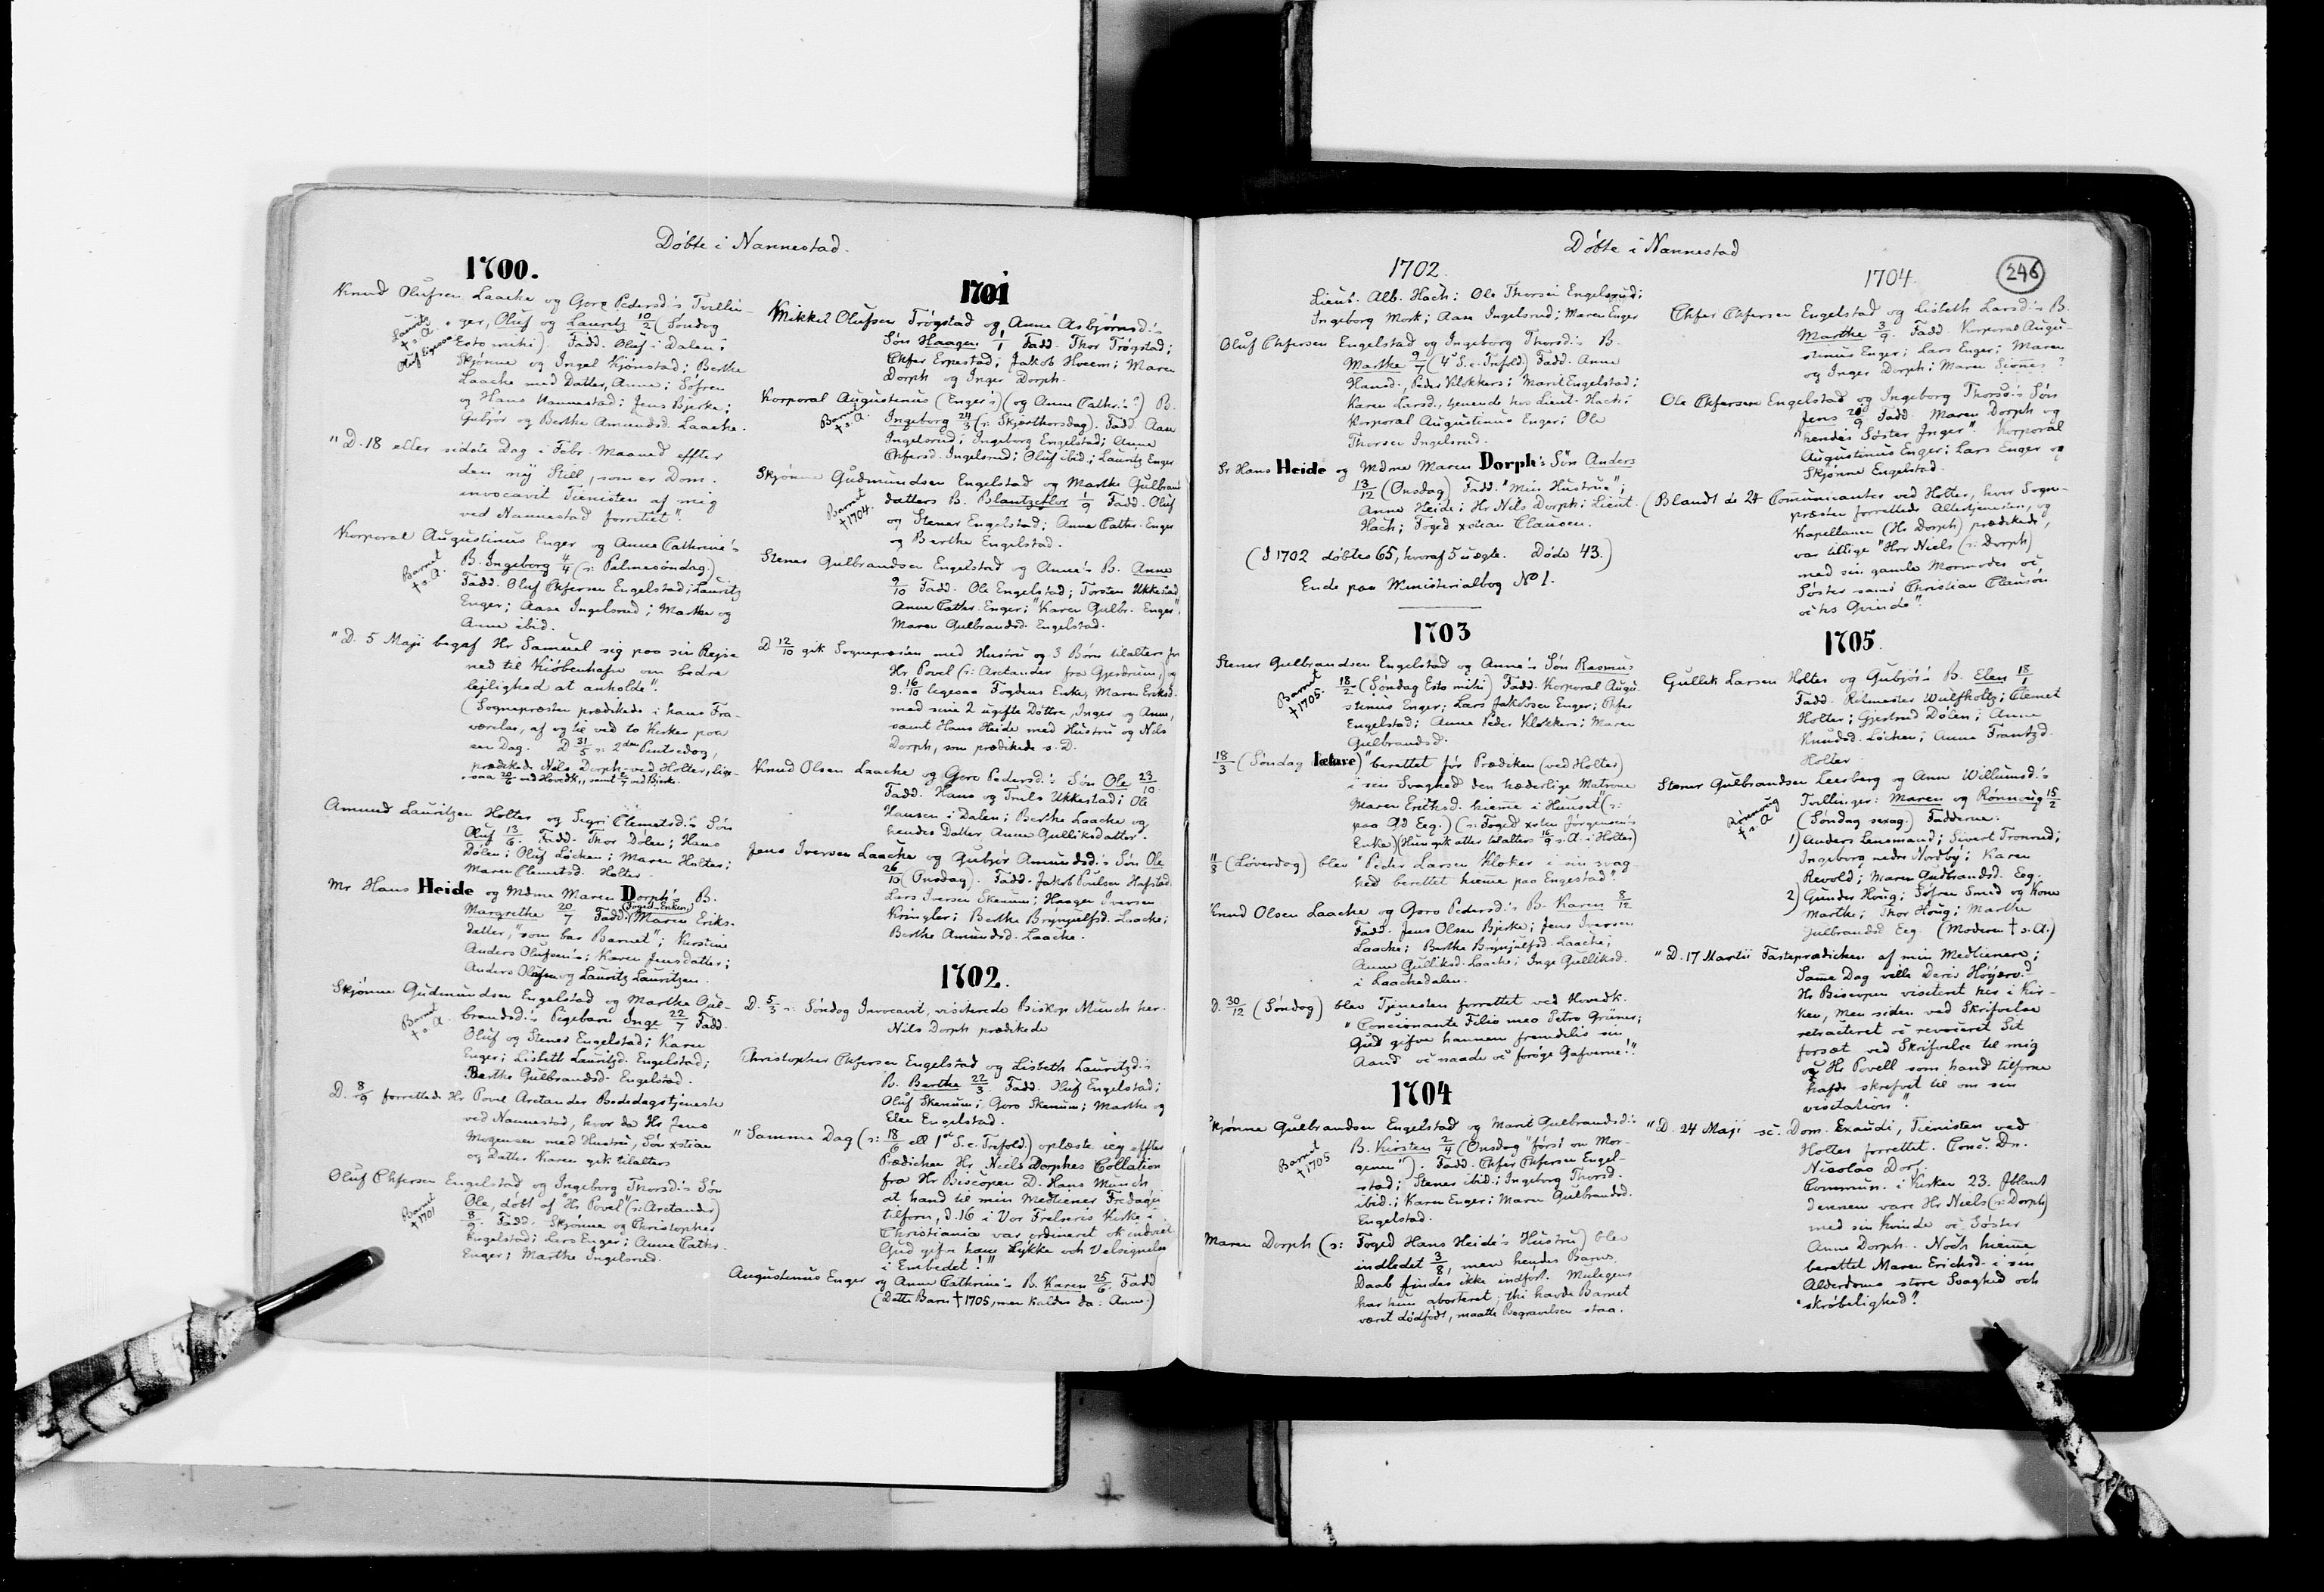 Döbte i Nannestad.
1700.
Knud Olufsen Laache og Goro Pedersd.'s Tvillin-
ger, Oluf og Lauritz 10/2 (Søndag
Lauritz
† s. A.
Esto mihi). Fadd. Oluf i Dalen;
Skjønne og Ingel Kjönstad; Berthe
Laache med Datter, Anne; Søfren
og Hans Nannestad; Jens Bjerke;
Gubjör og Berthe Amundsd. Laache.
"D. 18 eller sidste Dag i Febr. Maaned effter
den nÿ Still, som er Dom.
invocavit Tienisten af mig
ved Nannestad forrettet".
Korporal Augustinus Enger og Anne Cathrine's
Barnet
† s. A.
B. Ingeborg 4/4 (ɔ: Palmesöndag.)
Fadd. Oluf Chfersen Engelstad; Lauritz
Enger; Aase Ingelsrud; Marthe og
Anne ibid.
"D. 5 Maji begaf Hr Samuel sig paa sin Rejse
ned til Kiöbenhafn om bedre
lejlighed at anholde".
(Sognepræsten prædikede i hans Fra-
værelse, af og til ved to Kirker paa
een Dag. D 31/5 ɔ: 2den Pintsedag,
prædikede Nils Dorph ved Holter, lige-
saa 20/6 ved Hovedk., samt 2/7 ved Bjerke.
Amund Lauritzen Holter og Sigri Clemetsd.'s Søn
Oluf 13/6. Fadd. Thor Dölen; Hans
Dölen; Oluf Löcken; Maren Holter;
Maren Clemetsd. Holter
Mr Hans Heide og Mdme Maren Dorph's B.
Margrethe 20/7 Fadd: (Foged-Enken) Maren Eriks-
datter, "som bar Barnet"; Kirstine
Anders Olufsen's; Karen Jensdatter;
Anders Olufsen og Lauritz Lauritzen.
Skjönne Gudmundsen Engelstad og Marthe Gul-
Barnet
† s. A.
brandsd.'s Pigebarn Inge 22/7 Fadd.
Oluf og Stener Engelstad; Karen
Enger; Lisbeth Lauritzd. Engelstad;
Berthe Gulbrandsd. Engelstad.
D. 8/9 forrettede Hr Povel Arctander Bededagstjeneste
ved Nannestad, hvor da Hr Jens
Mogensen med Hustru, Søn xstian
og Datter Karen gik tilalters
Oluf Chfersen Engelstad og Ingeborg Thorsd.'s Søn
Barnet
† 1701
Ole, döbt af "Hr Povel" (ɔ: Arctander)
8/9. Fadd. Skjönne og Christopher
Engelstad; Lars Enger; Anne Cathr.
Enger; Marthe Ingelsrud.
1701
Mikkel Olufsen Trögstad og Anne Asbjørnsd.'s
Søn Haagen 1/1 Fadd. Thor Trögstad;
Chfer Erpestad; Jakob Hveem; Maren
Dorph og Inger Dorph.
Korporal Augustinus (Enger's) (og Anne Cathr.'s?) B.
Barnet
† s. A.
Ingeborg 24/3 (ɔ: Skjærthorsdag). Fadd. Aase
Ingelsrud; Ingeborg Engelstad; Anne
Chfersd. Ingelsrud; Oluf ibid.; Lauritz Enger
Skjønne Gudmundsen Engelstad og Marthe Gulbrand
Barnet
† 1704.
datters B. Blantzeflor 1/9 Fadd. Oluf
og Stener Engelstad; Anne Cathr. Enger
og Berthe Engelstad.
Stener Gulbrandsen Engelstad og Anne's B. Anne
9/10 Fadd. Ole Engelstad; Torsten Ukkestad
Anne Cathr. Enger; "Karen Gulbr. Enger";
Maren Gulbrandsd. Engelstad.
D 12/10 gik Sognepræsten med Hustru og 3 Børn tilalters for
Hr Povel (ɔ: Arctander fra Gjerdrum), og
d. 16/10 ligesaa Fogdens Enke, Maren Eriksd.
med sine 2 ugifte Döttre, Inger og Anne,
samt Hans Heide med Hustru og Nils
Dorph, som prædikede s. D.
Knud Olsen Laache og Goro Pedersd.'s Søn Ole 23/10.
Fadd. Hans og Truls Ukkestad; Ole
Hansen i Dalen; Berthe Laache og
hendes Datter Anne Gulliksdatter.
Jens Iversen Laache og Gubjör Amundsd.'s Søn Ole
26/10 (Onsdag). Fadd. Jakob Poulsen Hafstad;
Lars Iversen Ekenum; Haagen Iversen
Kringler; Berthe Brynjulfsd. Laache;
Berthe Amundsd. Laache.
1702.
D. 5/3 ɔ: Söndag Invocavit, visiterede Biskop Munch her.
Nils Dorph prædikede
Christopher Chfersen Engelstad og Lisbeth Lauritzd.'s
B. Berthe 22/3. Fadd. Oluf Engelstad;
Oluf Skenum; Goro Skenum; Marthe og
Elen Engelstad.
"Samme Dag (ɔ: 18/6 ell 1ste S. e. Trefold.) oplæste ieg effter
Prædichen Hr Niels Dorphes Collation
fra Hr Biscopen D. Hans Munch,
at hand til min Medtiener Fredagen
tilforn, d. 16 i Vor Frelseris Kirke i
Christiania var ordineret ok indviet
Gud gifve ham Lykke och Velsignelse
i Embedet!"
Augustinus Enger og Anne Cathrine's B. Karen 25/6. Fadd
(Dette Barn † 1705, men kaldes da: Anne)
Döbte i Nannestad
246
1702.
Lieut. Alb. Hach; Ole Thorsen Engelsrud;
Ingeborg Mork; Aase Ingelsrud; Maren Enger
Oluf Chfersen Engelstad og Ingeborg Thorsd.'s B.
Marthe 9/7 (4de S. e. Trefold) Fadd. Anne
Hansd., Peder Klokkers; Marit Engelstad;
Karen Larsd., tjenende hos Lieut. Hach;
Korporal Augustinus Enger; Ole
Thorsen Ingelsrud.
Sr Hans Heide og Mdme Maren Dorph's Søn Anders
13/12 (Onsdag) Fadd. "Min Hustrue";
Anne Heide; Hr Nils Dorph; Lieut.
Hach; Foged xstian Clausen.
(I 1702 döbtes 65, hvoraf 5 uægte. Döde 43.)
Ende paa Ministerialbog No 1.
1703
Stener Gulbrandsen Engelstad og Anne's Søn Rasmus
Barnet
† 1705.
18/2 (Söndag Esto mihi) Fadd. Korporal Augu-
stinus Enger; Lars Jakobsen Enger; Chfer
Engelstad; Anne Peder Klokkers; Maren
Gulbrandsd.
18/3 (Söndag lætare) "berettet för Prædiken (ved Holter)
i sin Svaghed den hæderlige Matrone
Maren Erichsd. hieme i Huuset" (ɔ:
paa Gd Eeg.) (ɔ: Foged xsten Jörgensen's
Enke) (Hun gik atter tilalters 16/9 s. A. i Holter)
11/8 (Löverdag) blev "Peder Larsen Kloker i sin svag-
hed berettet hieme paa Engestad".
Knud Olsen Laache og Goro Pedersd.'s B. Karen 8/12
Fadd. Jens Olsen Bjerke; Jens Iversen
Laache; Berthe Brynjulfsd. Laache;
Anne Gulliksd. Laache; Inge Gulliksd.
i Laachedalen.
D. 30/12 (Söndag) blev Tjenesten forrettet ved Hovedk.
"Concionante Filio meo Petro Grüner;
Gud gifve hannem fremdelis sin
Aand oc naade oc foröge Gafverne!"
1704
Skjönne Gulbrandsen Engelstad og Marit Gulbrandsd.'s
Barnet
† 1705
B. Kirsten 2/4 (Onsdag "först om Mor-
genen"). Fadd. Chfer Chfersen Engel-
stad; Stener ibid.; Ingeborg Thorsd.
ibid.; Karen Enger; Maren Gulbrandsd.
Engelstad.
Maren Dorph (ɔ: Foged Hans Heide's Hustru) blev
indledet 3/8, men hendes Barns
Daab findes ikke indført. Muligens
har hun aborteret; thi havde Barnet
været dödfödt, maatte Begravelsen staa.
1704.
Chfer Chfersen Engelstad og Lisbeth Larsd.'s B.
Marthe 3/9. Fadd. Korporal Augu-
stinus Enger; Lars Enger; Maren
og Inger Dorph; Maren
Ole Chfersen Engelstad og Ingeborg Thorsd.'s Søn
Jens 28/9 Fadd. Maren Dorph og
"hendes Søster Inger". Korporal
Augustinus Enger; Lars Enger og
Skjönne Engelstad.
(Blandt de 24 Communicanter ved Holter, hvor Sogne-
præsten forrettede Altertjenesten, og
Kapellanen (Hr Dorph) prædikede,
var tillige "Hrr Niels (ɔ: Dorph)
med sin gamle Mormoder oc
Söster samt Christian Clauson
oc hs Qvinde".
1705.
Gullik Larsen Holter og Gubjör's B. Elen 18/1
Fadd. Ritmester Wulfholtz; Clemet
Holter; Gjertrud Dölen; Anne
Knudsd. Löchen; Anne Frantzd.
Holter
Stener Gulbrandsen Leesberg og Ann Willumsd.'s
Rönnoug
† s. A
Tvillinger: Maren og Rönnoug 15/2
(Söndag sexag.) Fadderne:
1) Anders Lensmand; Sivert Tronrud;
Ingeborg nedre Nordby; Karen
Revold; Maren Gudbrandsd. Eeg.
2) Gunder Houg; Söfren Smed og Kone
Marthe; Thor Houg; Marthe
Gulbrandsd Eeg. (Moderen † s. A.)
"D. 17 Martii Fasteprædichen af min Medtienere;
Same Dag ville Deris Höyærv.d
Hr Biscopen visiteret her i Kir-
ken, men siden ved Skrifvelse
retracteret oc revoceret Sit
forsæt ved Skrifvelse til mig
og Hr Povell som hand tilforne
hafde skrefvet til om sin
visitation".
"D. 24 Maji sc. Dom. Exaudi, Tienisten ved
Holter forrettet. Conc. Dn.
Nicolao Dorf.
Commun. i Kirken 23. Iblant
dennem vare Hr Niels (ɔ: Dorph)
med sin Kvinde oc Söster
Anne Dorph. Noch hieme
berettet Maren Erichsd. i sin
Alderdoms store Svaghed och
skröbelighed".